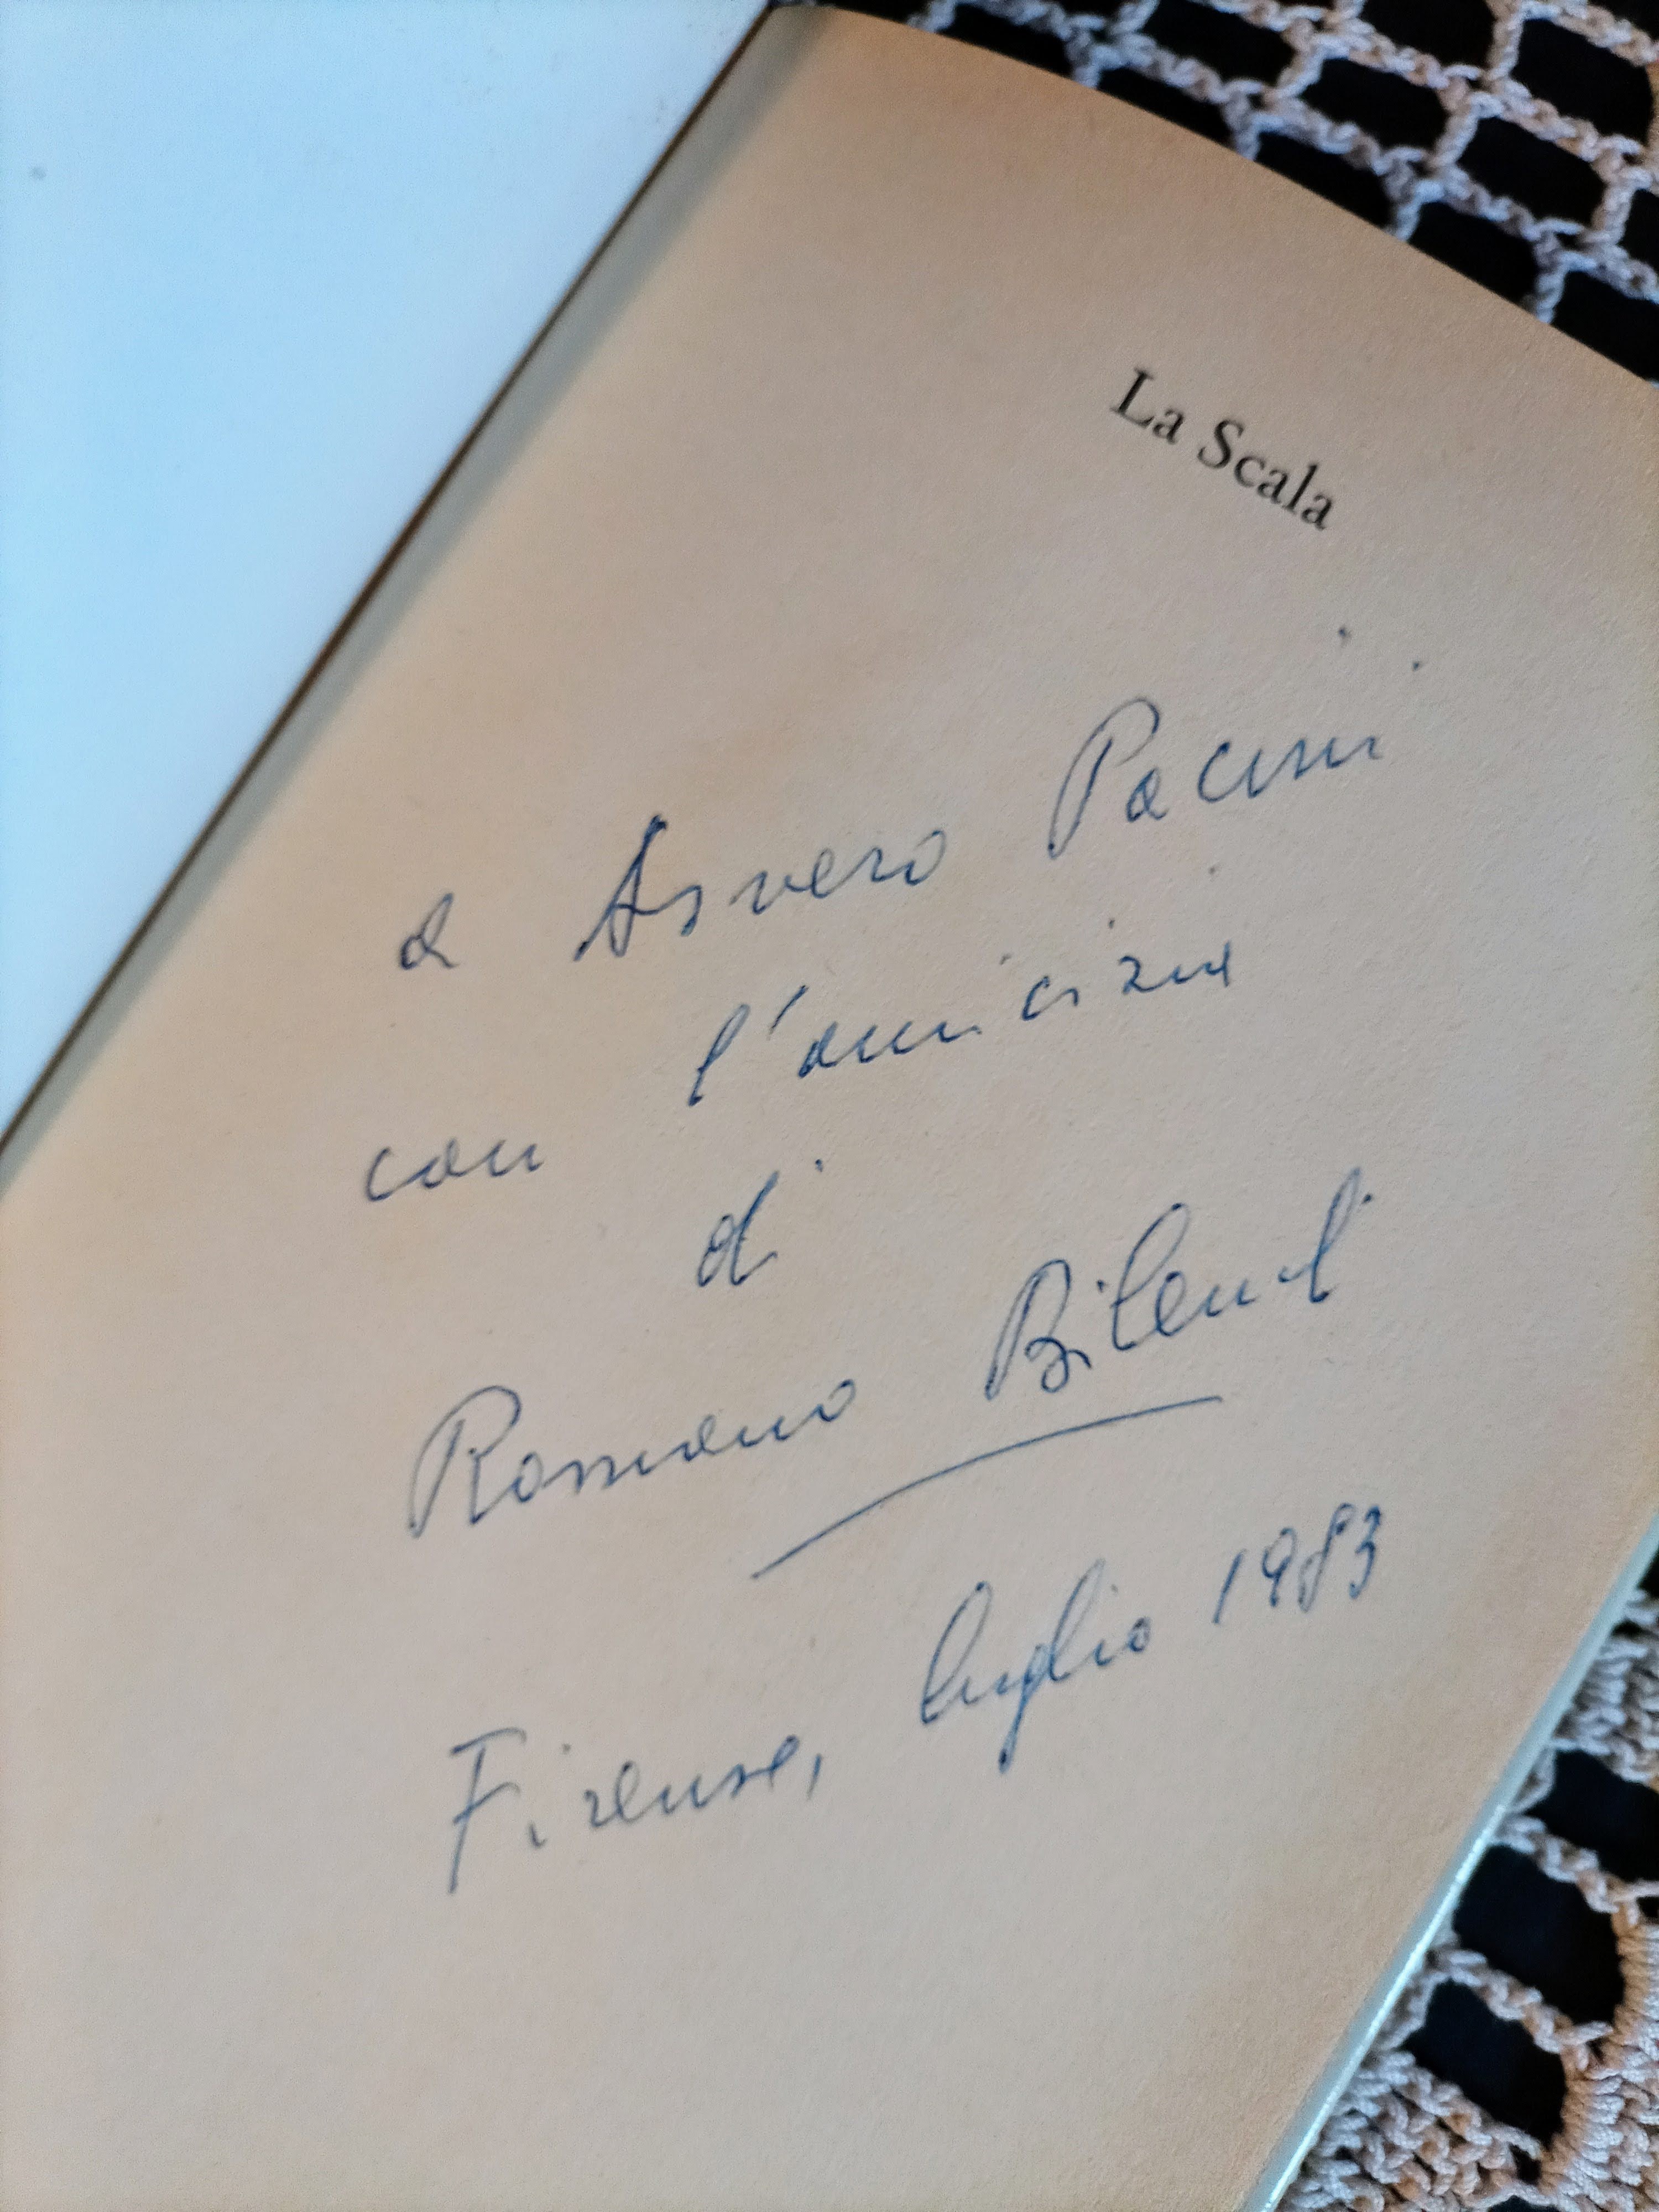 La Scala
a Asvero Pacini
con l'amicizia
di
Romano Bilenchi
Firenze, luglio 1983